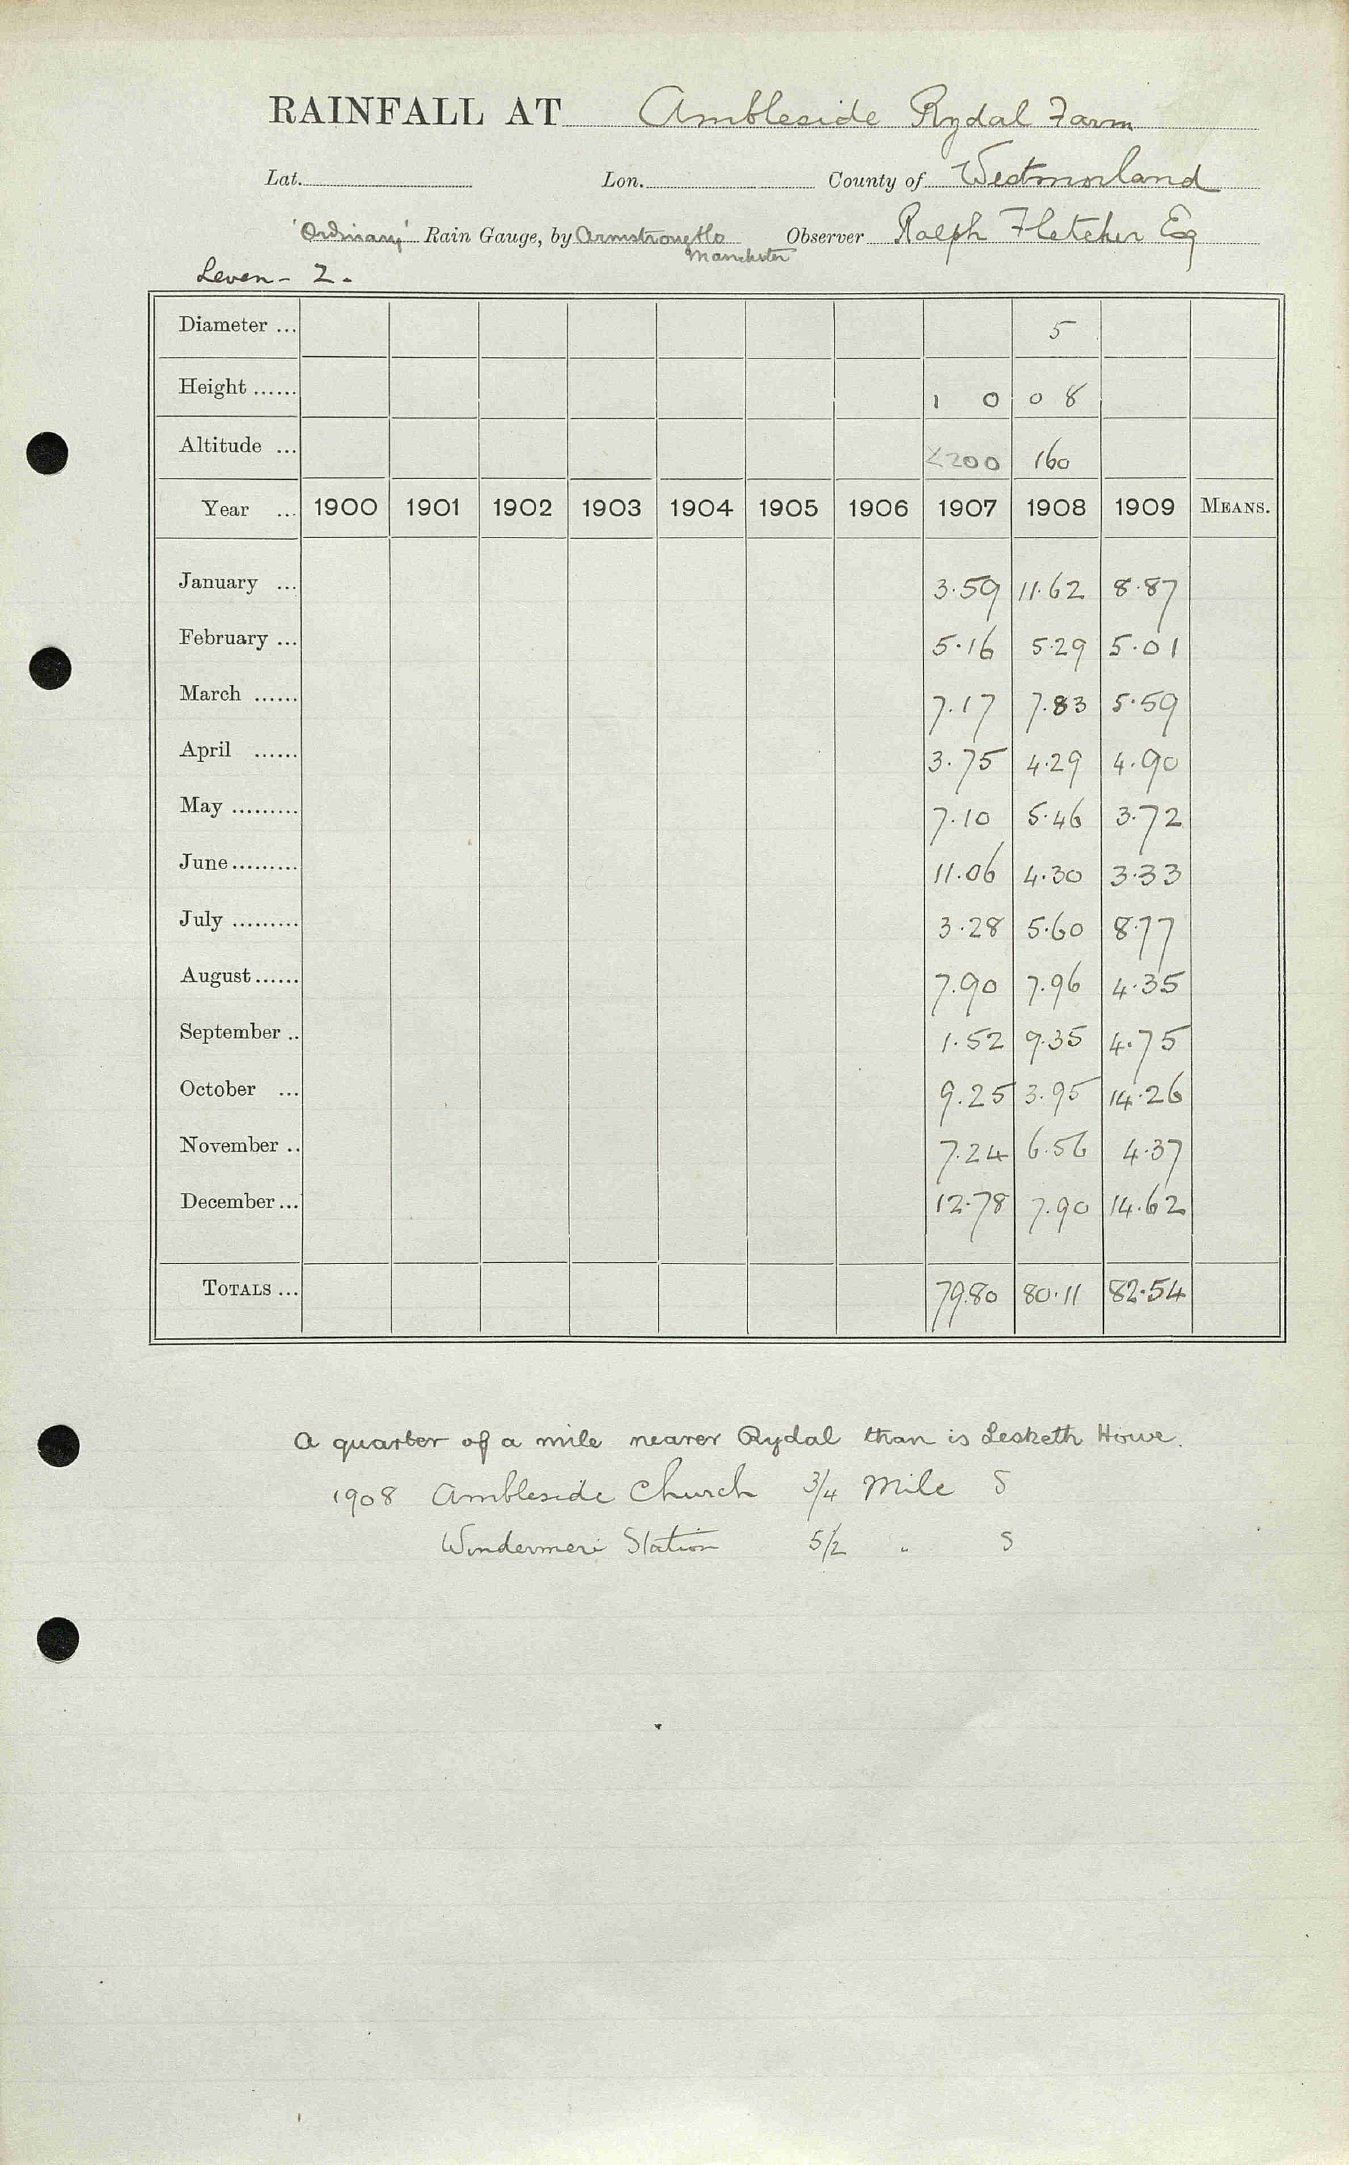 RAINFALL AT Ambleside Rydal Farm
Lat. Lon. County of Westmorland
'Ordinary' Rain Gauge, by Armstrong & Co Observer Ralph Fletcher Esq
Manchester
Leven - 2.
Diameter ... 5
Height ...... 1 0 0 8
Altitude ... <200 160
Year ... 1900 1901 1902 1903 1904 1905 1906 1907 1908 1909 MEANS.
January ... 3.59 11.62 8.87
February ... 5.16 5.29 5.01
March ...... 7.17 7.83 5.59
April ...... 3.75 4.29 4.90
May ......... 7.10 5.46 3.72
June......... 11.06 4.30 3.33
July ......... 3.28 5.60 8.77
August...... 7.90 7.96 4.35
September .. 1.52 9.35 4.75
October ... 9.25 3.95 14.26
November .. 7.24 6.56 4.37
December... 12.78 7.90 14.62
TOTALS ... 79.80 80.11 82.54
A quarter of a mile nearer Rydal than is Lesketh Howe.
1908 Ambleside Church 3/4 Mile S
Windermere Station 5 1/2 " S